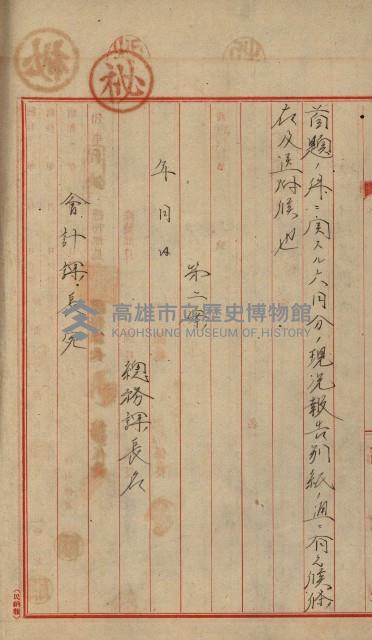 首題ノ件ニ関スル六月分ノ現況報告別紙ノ通ニ有之候條
及送附候也
第二案
年 月 日
総務課長名
会計課長宛
秘
高雄市立歷史博物館
KAOHSIUNG MUSEUM OF HISTORY